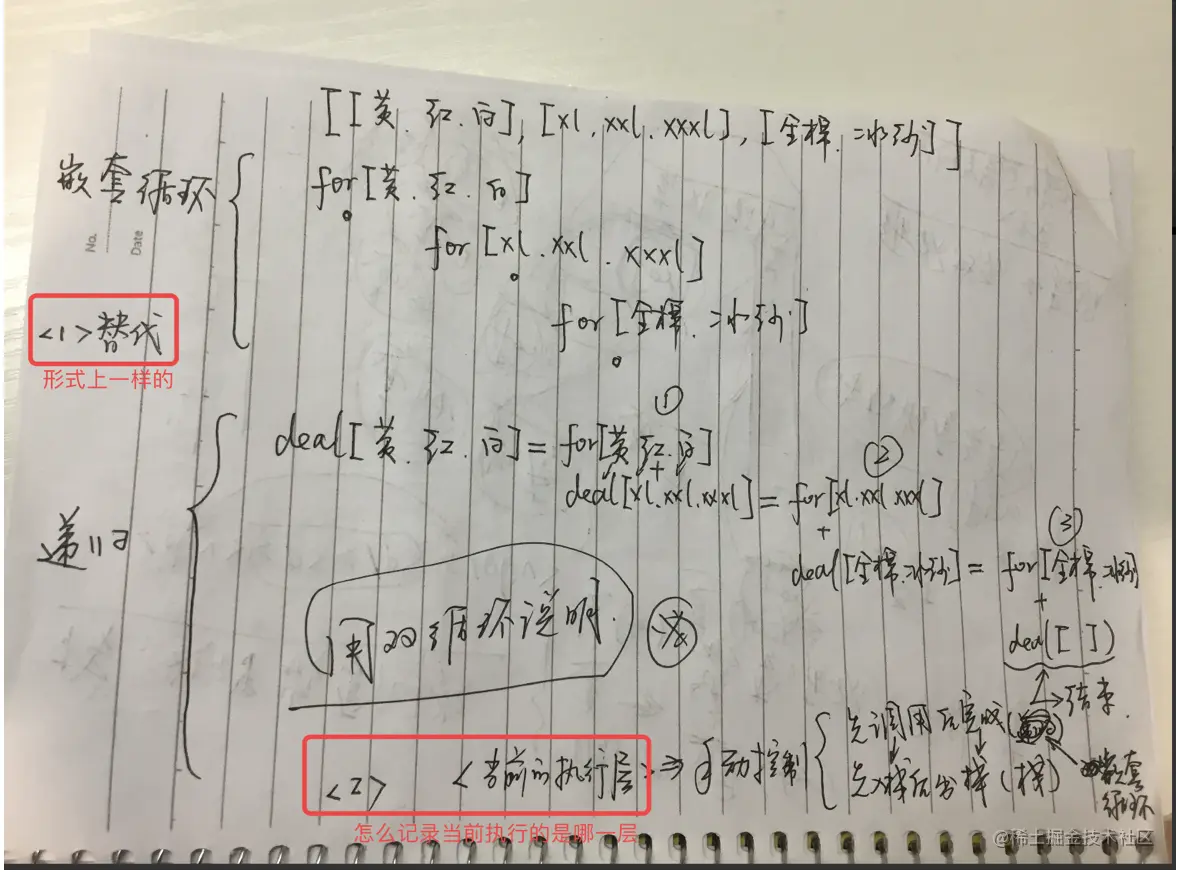 [[黄.红.白],[xl.xxl.xxxl],[全棉.冰丝]]
嵌套循环
for[黄.红.白]
No.
Date
for[xl.xxl.xxxl]
<1>替代
for[全棉.冰丝]
形式上一样的
①
deal[黄.红.白]=for[黄.红.白]
+
②
deal[xl.xxl.xxxl]=for[xl.xxl.xxxl]
+
③
递归
deal[全棉.冰丝]=for[全棉.冰丝]
+
deal[ ]
循环说明
结束.
<2>
<当前的执行层>⇒自动控制
先调用后完成
先入栈后出栈(栈)
嵌套
循环
怎么记录当前执行的是哪一层
@稀土掘金技术社区